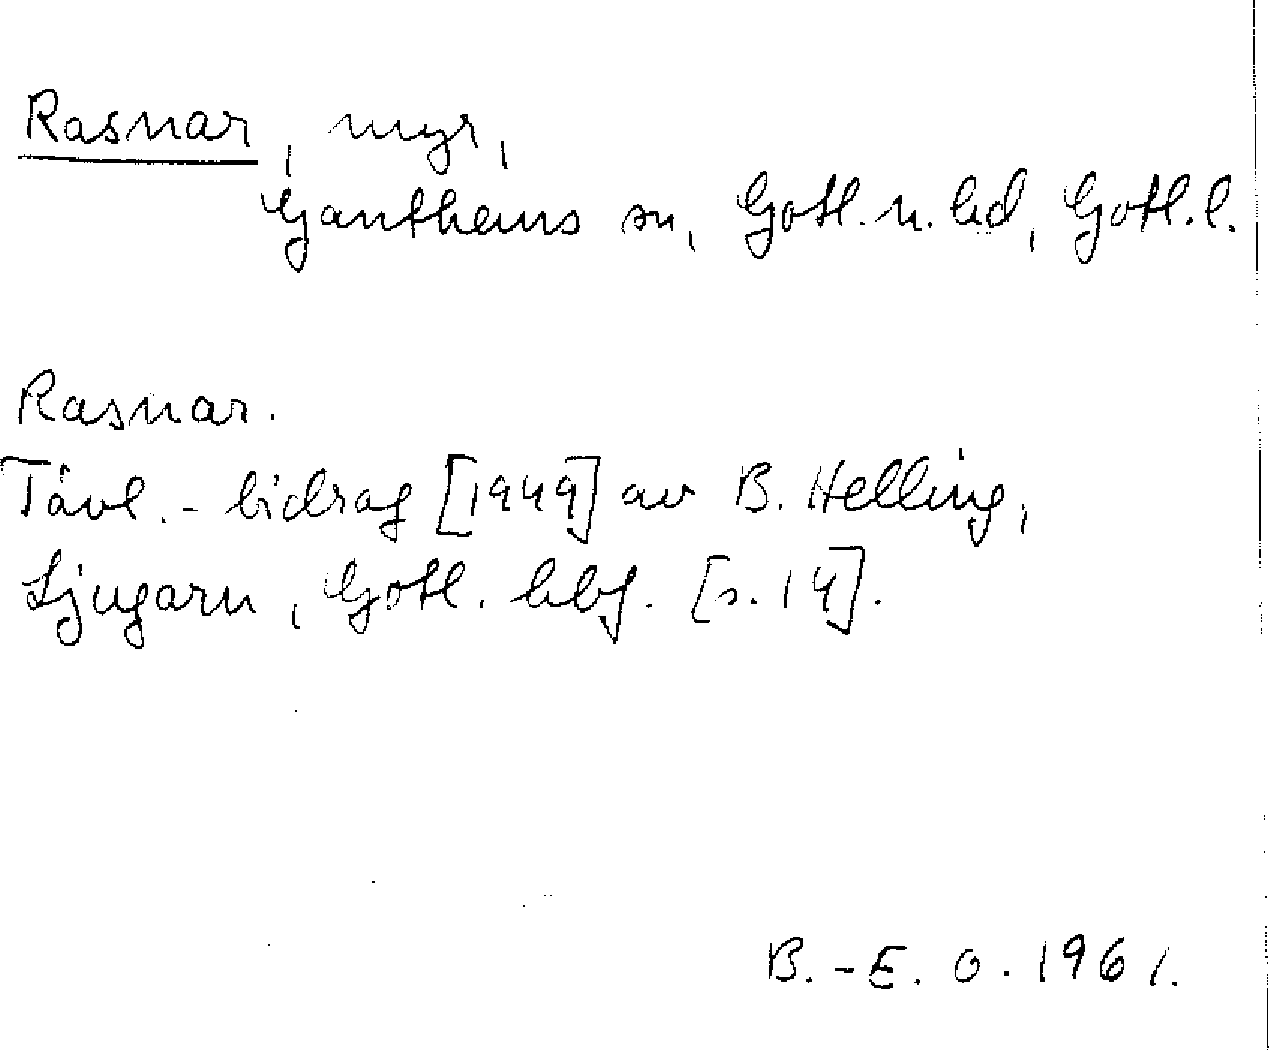 Rasnar, myr,
Ganthems sn, Gotl. n. hd, Gotl. l.
Rasnar.
Tävl.- bidrag [1949] av B. Helling,
Ljugarn, Gotl. hbf. [s. 14].
B.-E. O. 1961.